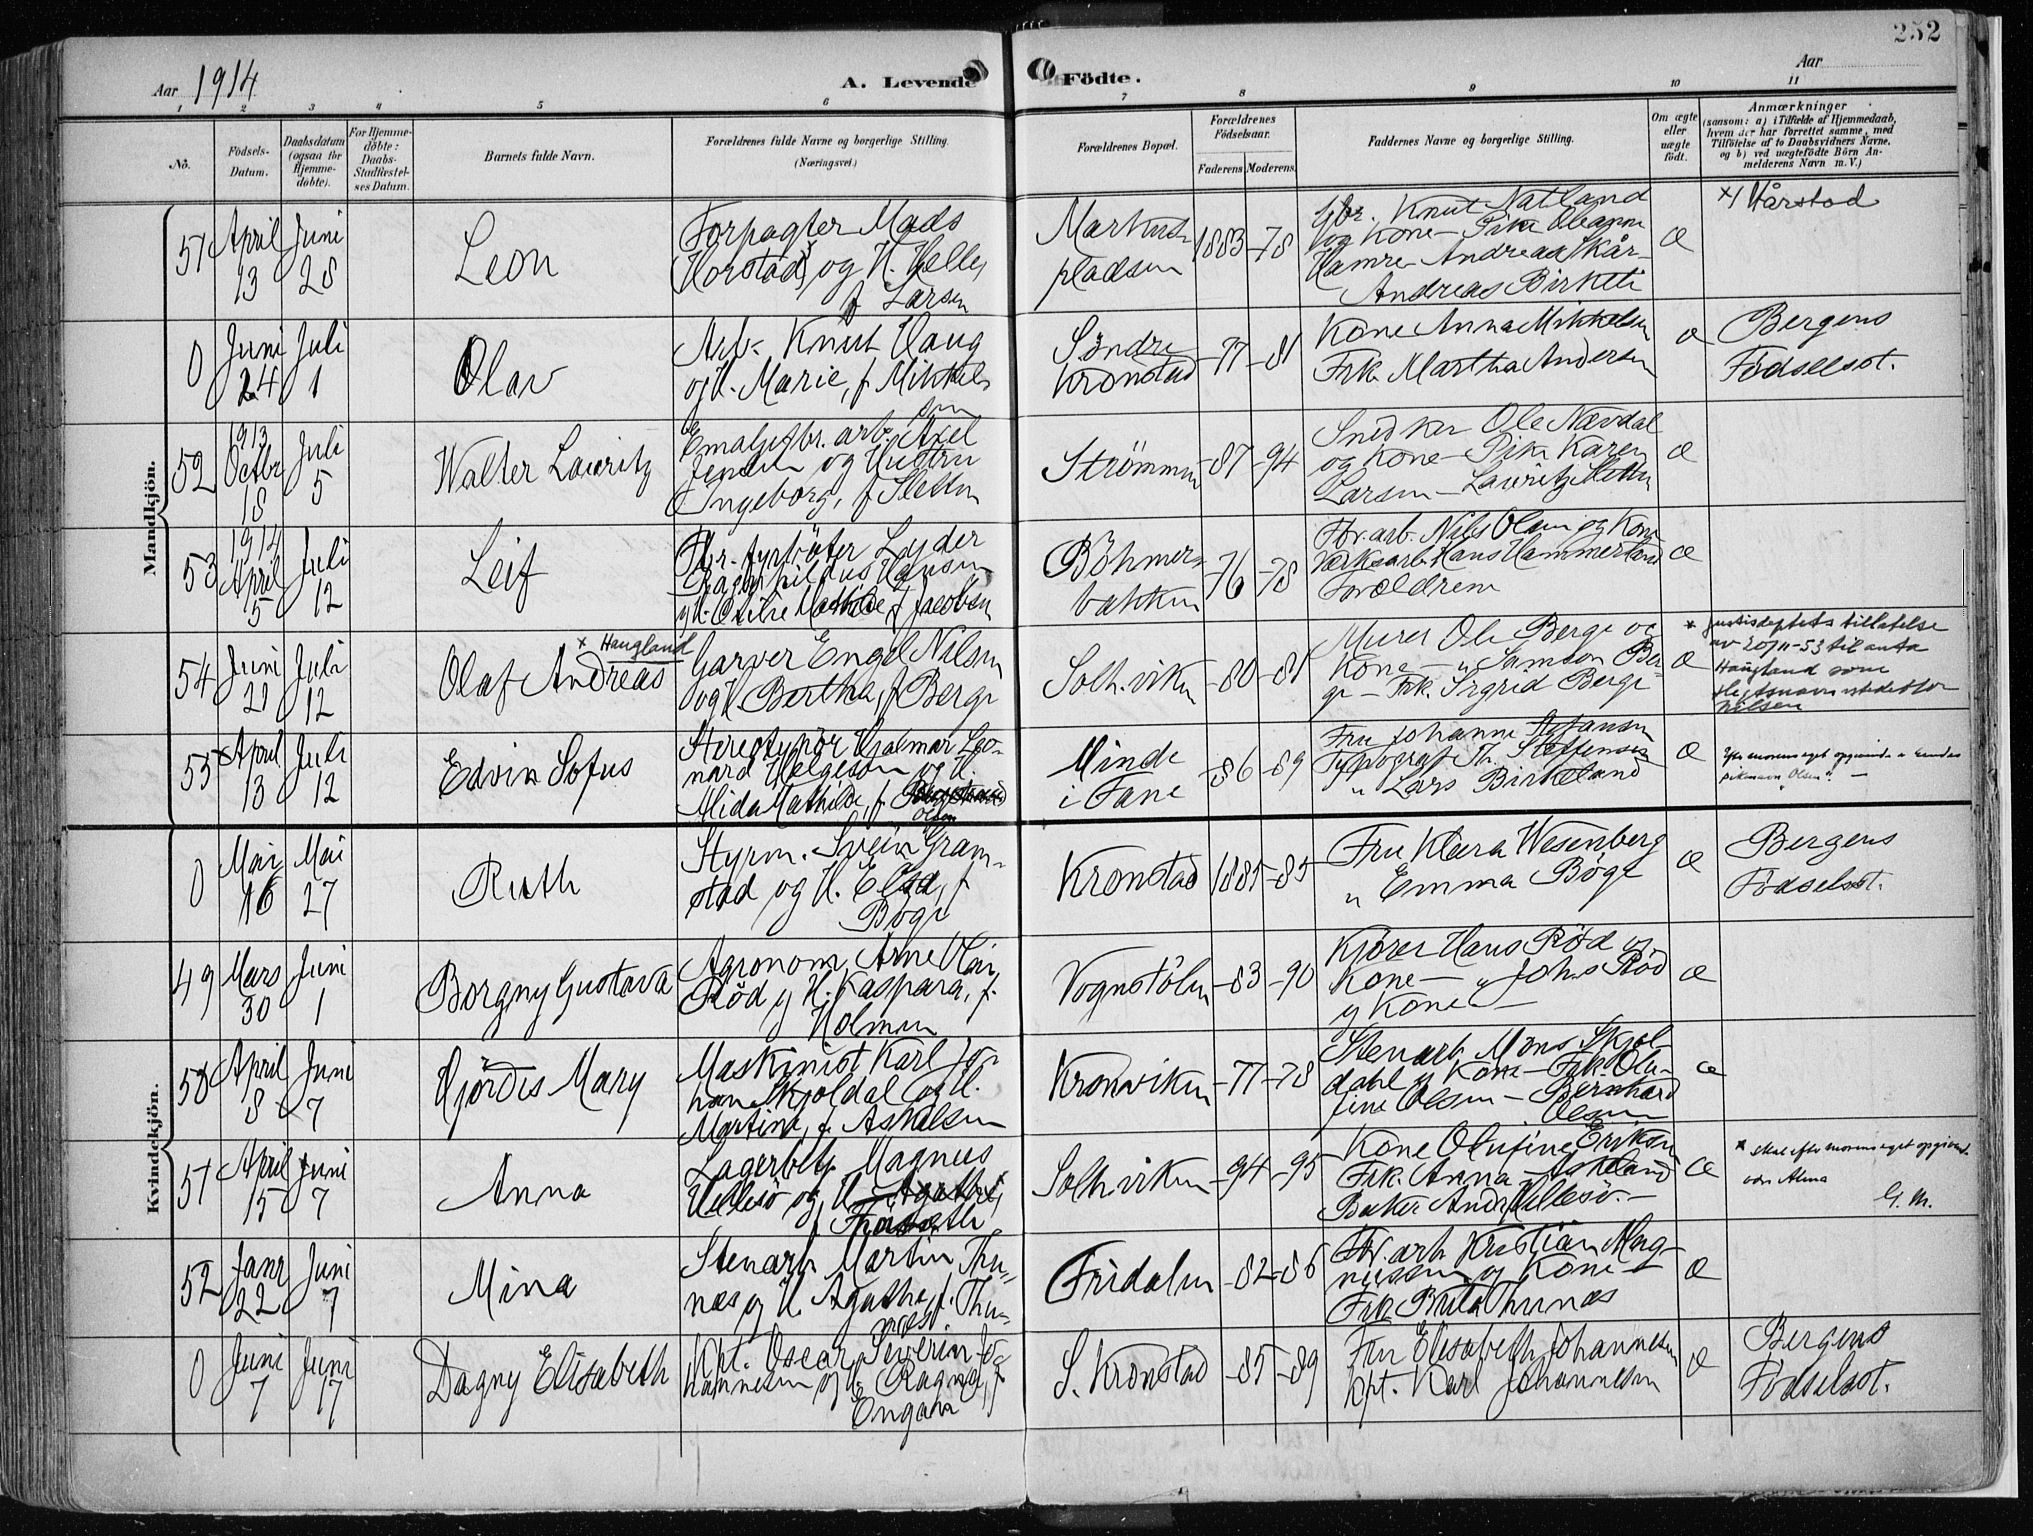 252
Aar 1914
A. Levende Födte.
Aar
1 2 3 4 5 6 7 8 9 10 11
No.
Födsels-Datum.
Daabsdatum (ogsaa for Hjemme-döbte).
For Hjemme-döbte: Daabs-Stadfæstel-ses Datum.
Barnets fulde Navn.
Forældrenes fulde Navne og borgerlige Stilling.
(Næringsvei.)
Forældrenes Bopæl.
Forældrenes Födselsaar.
Faderens Moderens.
Faddernes Navne og borgerlige Stilling.
Om ægte eller uægte födt.
Anmærkninger
(saasom: a) i Tilfælde af Hjemmedaab,
hvem der har forrettet samme, med
Tilföielse af to Daabsvidners Navne,
og b) ved uægtefödte Börn An-
melderens Navn m. V.)
Mandkjön.
51
April 13
Juni 28
Leon
Forpagter Mads
Horstad og H. Helle,
f Larsen
Markus-
pladsen
1883 -78
Gbr. Knut Natland
og Kone - Pike Oleanne
Hamre - Andreas Skår -
Andreas Birkeli
æ
x/ Hårstad
0
Juni 24
Juli 1
Olav
Arb. Knut Haug
og H. Marie, f Mikkel-
sen
Söndre
Kronstad
-77 -81
Kone Anna Mikkelsen
Frk. Martha Andersen
æ
Bergens
Födselsst.
52
1913 Octbr 18
Juli 5
Walter Lauritz
Emaljefbr. arb. Axel
Jensen og Hustru
Ingeborg, f Sletten
Strømmen
-87 -94
Snedker Ole Nævdal
og Kone - Pike Karen
Larsen - Lauritz Sletten
æ
53
1914 April 5
Juli 12
Leif
Fbr. fyrbøter Lyder
Hansen
Mathilde f Jacobsen
Böhmer-
bakken
-76 -78
Fbr. arb. Nils Olsen og Kone
Værksarb. Hans Hammersland
Forældrene
æ
54
Juni 21
Juli 12
x Haugland
Olaf Andreas
Garver Engel Nilsen
og H. Bertha, f Berge
Solh.viken
-80 -81
Murer Ole Berge og
Kone - " Samson Ber-
ge - Frk. Sigrid Berge
æ
x Justisdeptets tillatelse
av 20/11-53 til anta
Haugland som
slegtsnavn istedetfor
Nilsen
55
April 13
Juli 12
Edvin Sofus
Stereotypör Hjalmar Leo-
nard Helgesen og H.
Mida Mathilde, f
Olsen
Minde
i Fane
-86 -89
Fru Johanne
Typograf Th. Steffensen
" Lars Birkeland
æ
pikenavn Olsen".
Kvindekjön.
0
Mai 16
Mai 27
Ruth
Styrm. Svein Gram-
stad og H. Elsa, f
Böge
Kronstad
1885 -85
Fru Klara Wesenberg
" Emma Böge
æ
Bergens
Födselsst.
49
Mars 30
Juni 1
Borgny Gustava
Agronom Arne
Röd og H. Kaspara, f.
Holmen
Vognstölen
-83 -90
Kjörer Hans Röd og
Kone - " Johs Röd
og Kone -
æ
50
April 8
Juni 7
Hjördis Mary
Maskinist Karl Jo-
han Skjoldal og H.
Martine, f. Askelsen
Kronviken
-77 -78
Stenarb. Mons Skjol-
dahl og Kone - Frk. Olu-
fine Olsen - Bernhard
Olsen
æ
51
April 15
Juni 7
Anna
Lagerbetj. Magnus
Hillesö og H. Agathe,
f
Solh.viken
-94 -95
Kone Olufine Eriksen
Frk. Anna Askeland
Baker Andr. Hillesö. -
æ
x skal efter morens eget opgivende
være Alma
G. M.
52
Janr 22
Juni 7
Mina
Stenarb. Martin Thu-
næs og H. Agatha, f. Thu-
næs.
Fridalen
-82 -86
Fbr. arb. Kristian Mag-
nussen og Kone -
Frk. Brita Thunæs
æ
0
Juni 7
Juni 17
Dagny Elisabeth
Kpt. Oscar Severin Jo-
hannesen og H. Ragna, f
S. Kronstad
-85 -89
Fru Elisabeth Johannesen
Kpt. Karl Johannesen
æ
Bergens
Födselsst.